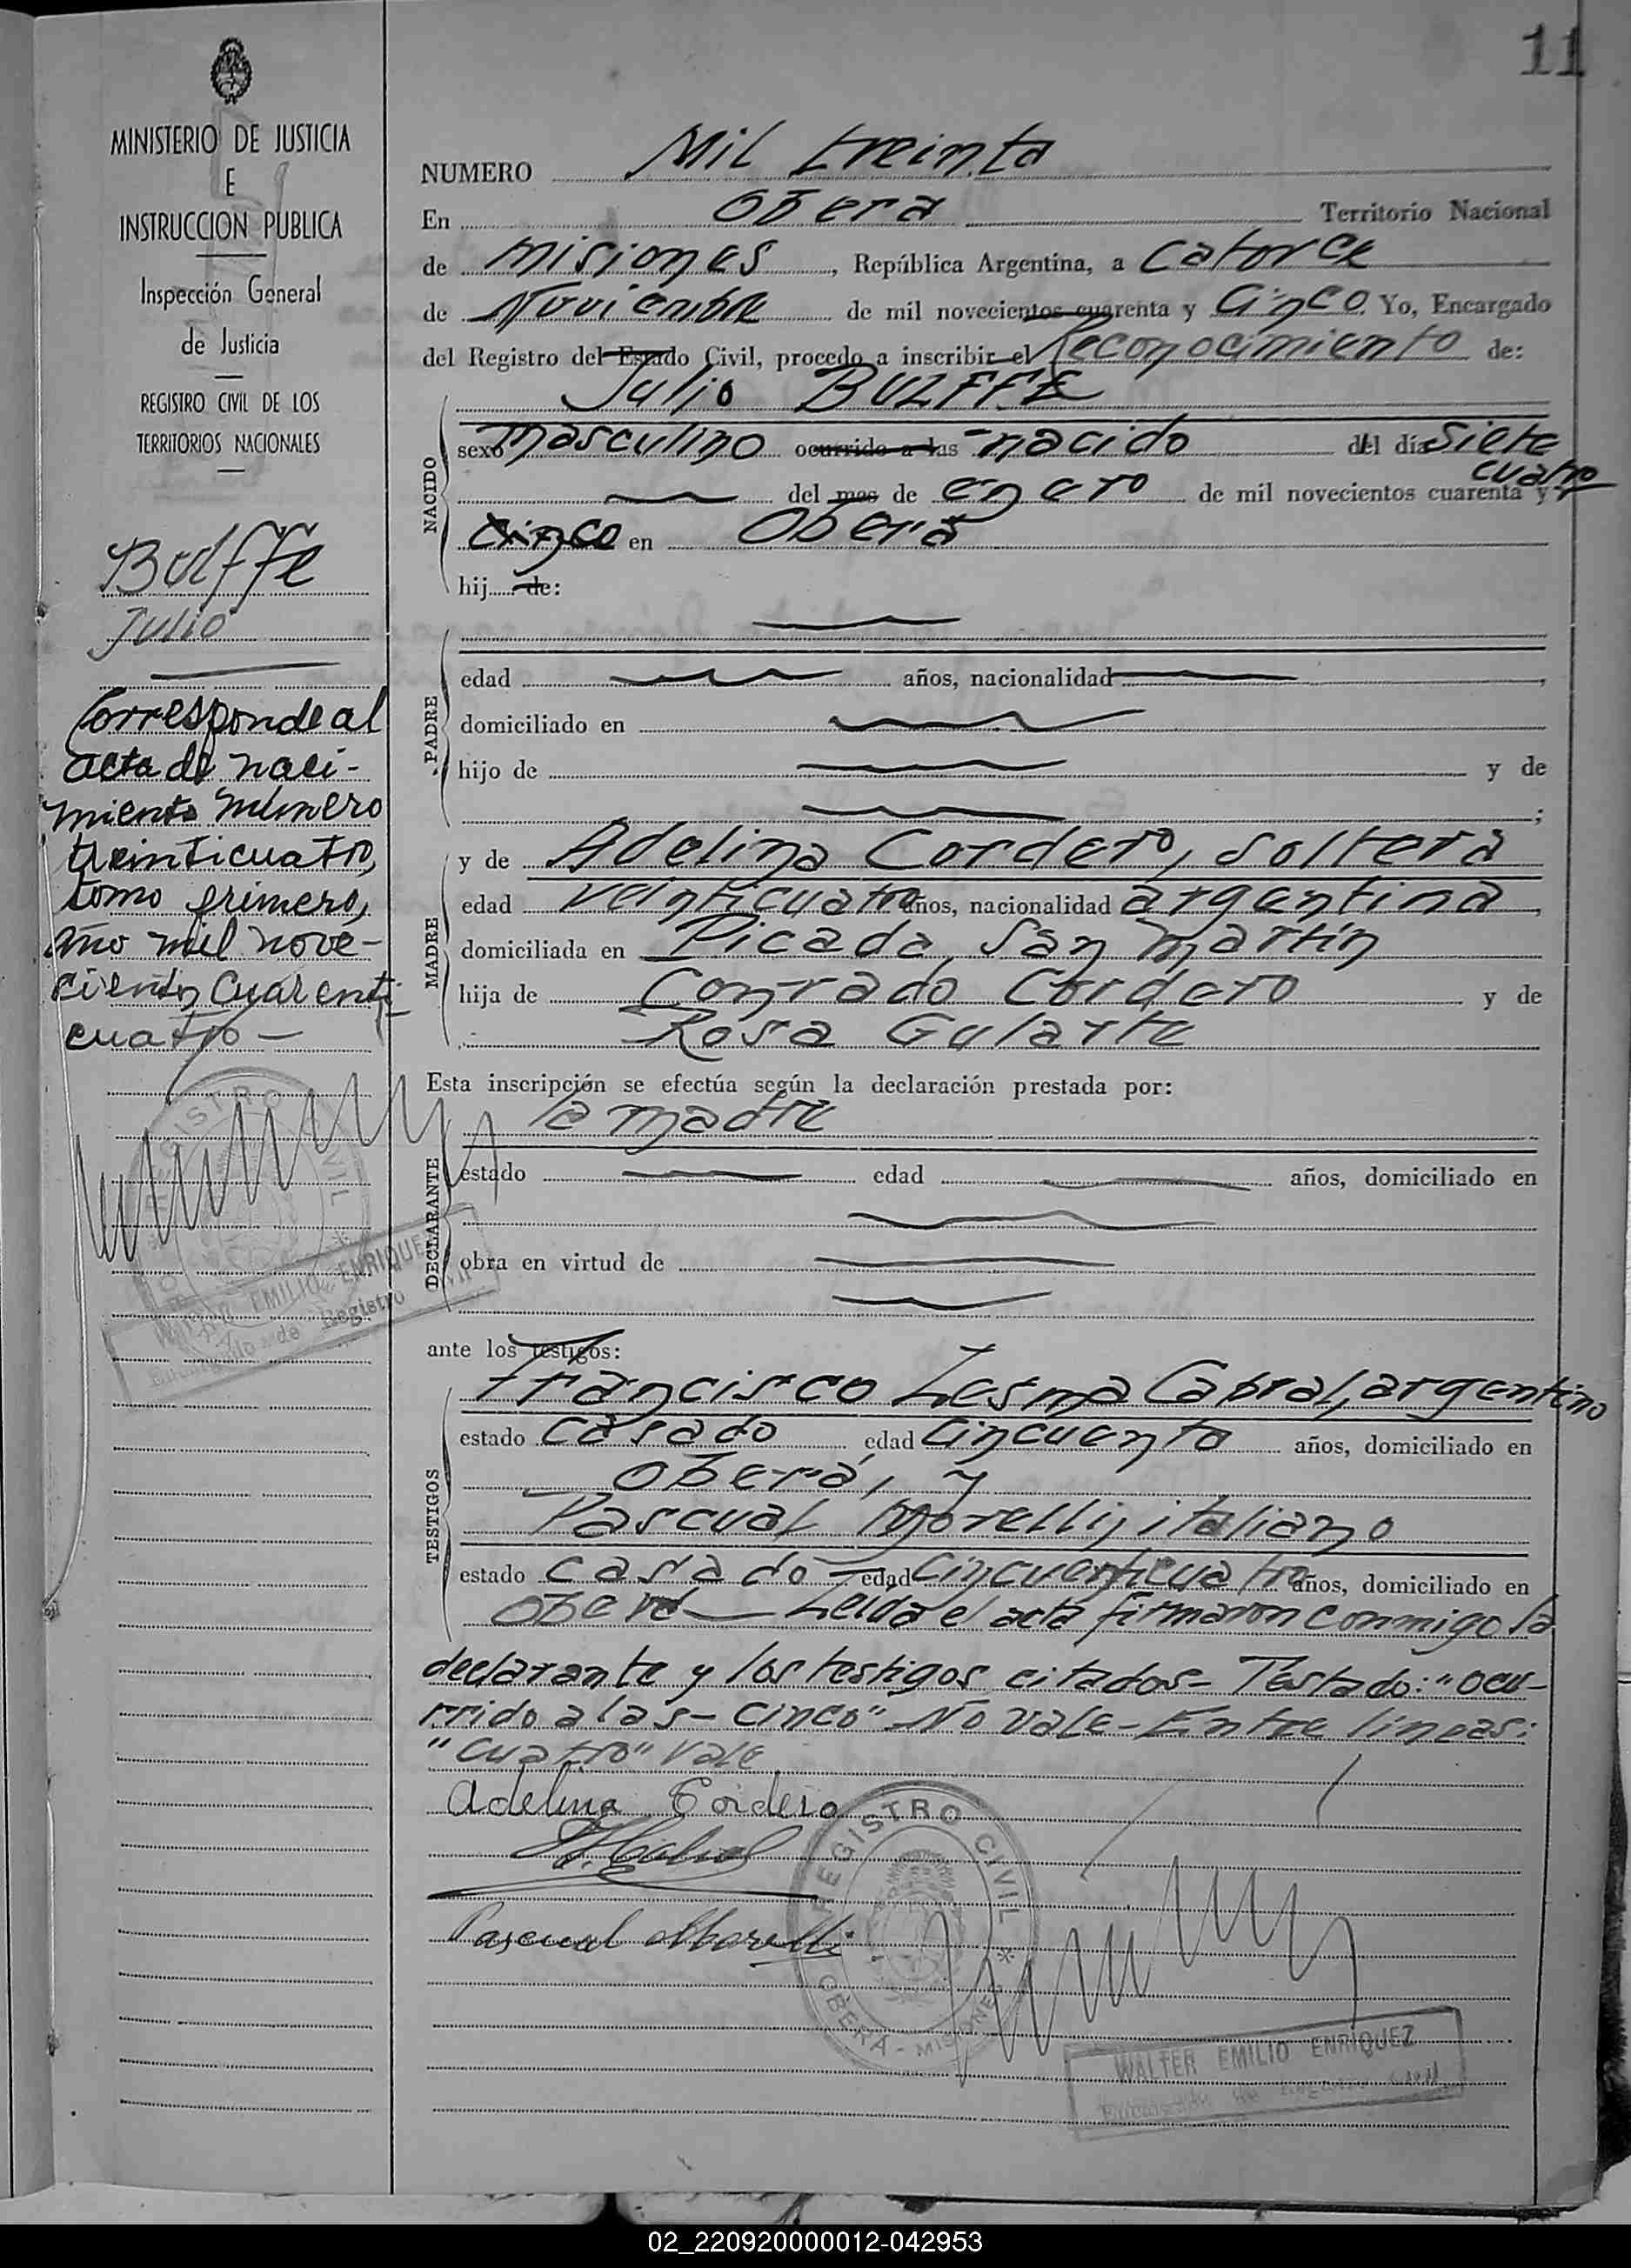 11
MINISTERIO DE JUSTICIA
E
INSTRUCCION PUBLICA
Inspección General
de Justicia
REGISTRO CIVIL DE LOS
TERRITORIOS NACIONALES
Bulffe
Julio
Corresponde al
acta de naci-
miento número
veinticuatro,
tomo primero,
año mil nove-
cientos cuarenti
cuatro —
REGISTRO CIVIL
WALTER EMILIO ENRIQUEZ
Encargado de Registro Civil
NUMERO Mil treinta
En Oberá Territorio Nacional
de Misiones, República Argentina, a catorce
de Noviembre de mil novecientos cuarenta y cinco. Yo, Encargado
del Registro del Estado Civil, procedo a inscribir el Reconocimiento de:
NACIDO
Julio BULFFE
sexo masculino ocurrido a las - nacido del día siete
cuatro
del mes de enero de mil novecientos cuarenta y
cinco en Oberá
hij de:
PADRE
edad años, nacionalidad ,
domiciliado en
hijo de y de
;
MADRE
y de Adelina Cordero, soltera
edad veinticuatro años, nacionalidad argentina,
domiciliada en Picada San Martín
hija de Conrado Cordero y de
Rosa Gularte
Esta inscripción se efectúa según la declaración prestada por:
DECLARANTE
la madre
estado edad años, domiciliado en
obra en virtud de
ante los testigos:
TESTIGOS
Francisco Lesma Cabral, argentino
estado casado edad cincuenta años, domiciliado en
Oberá, y
Pascual Morelli, italiano
estado casado - edad cincuenticuatro años, domiciliado en
Oberá — Leída el acta firmaron conmigo la
declarante y los testigos citados - Testado: "ocu-
rrido a las - cinco" No vale - Entre líneas:
"cuatro" vale
Adelina Cordero
Pascual Morelli
REGISTRO CIVIL
OBERÁ - MISIONES
WALTER EMILIO ENRIQUEZ
Encargado de Registro Civil
02_220920000012-042953